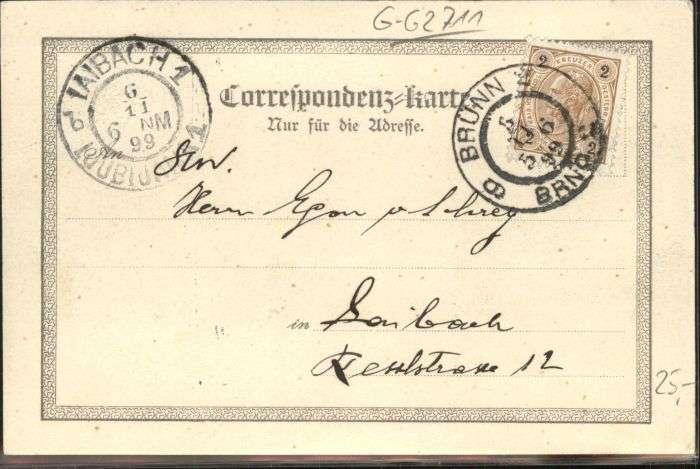 G-G2711
LAIBACH 1
6
11
6 NM
99
LJUBLJANA 1
Correspondenz-Karte
Nur für die Adresse.
2 KREUZER 2
BRÜNN
5 11
99 6
BRNO
Herrn Egon v
in Laibach
12
25,-